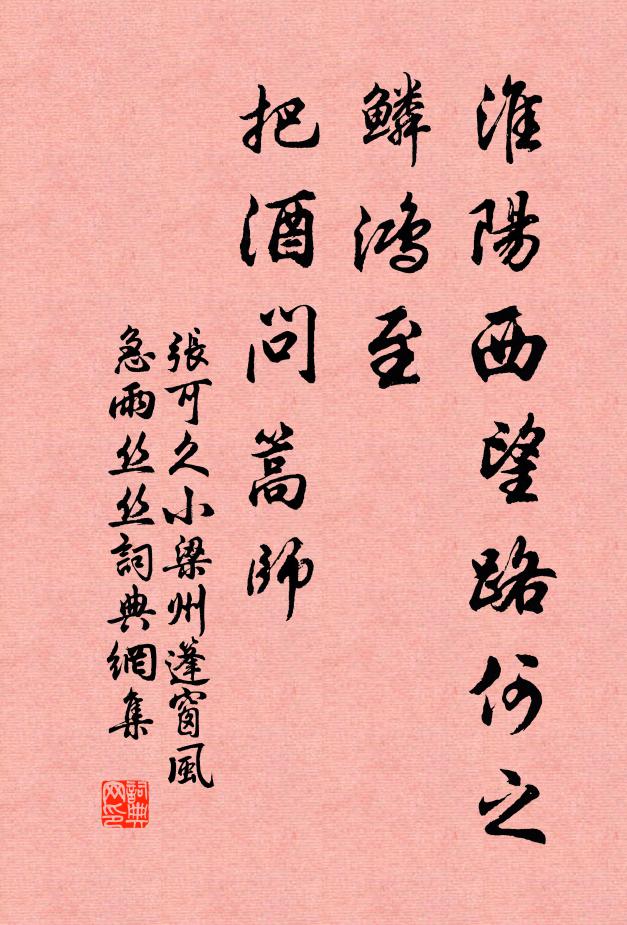 淮陽西望路何之
鱗鴻至
把酒問篙師
張可久小梁州蓬窗風
急雨絲絲詞典網集
詞典
网印